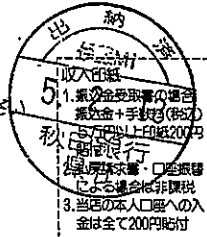 出納済
収入印紙
1. 振込金受取書の場合
振込金+手数料(税込)
5万円以上印紙200円
銀行
2. 払戻請求書・口座振替
による場合は非課税
3. 当店の本人口座への入
金は全て200円貼付